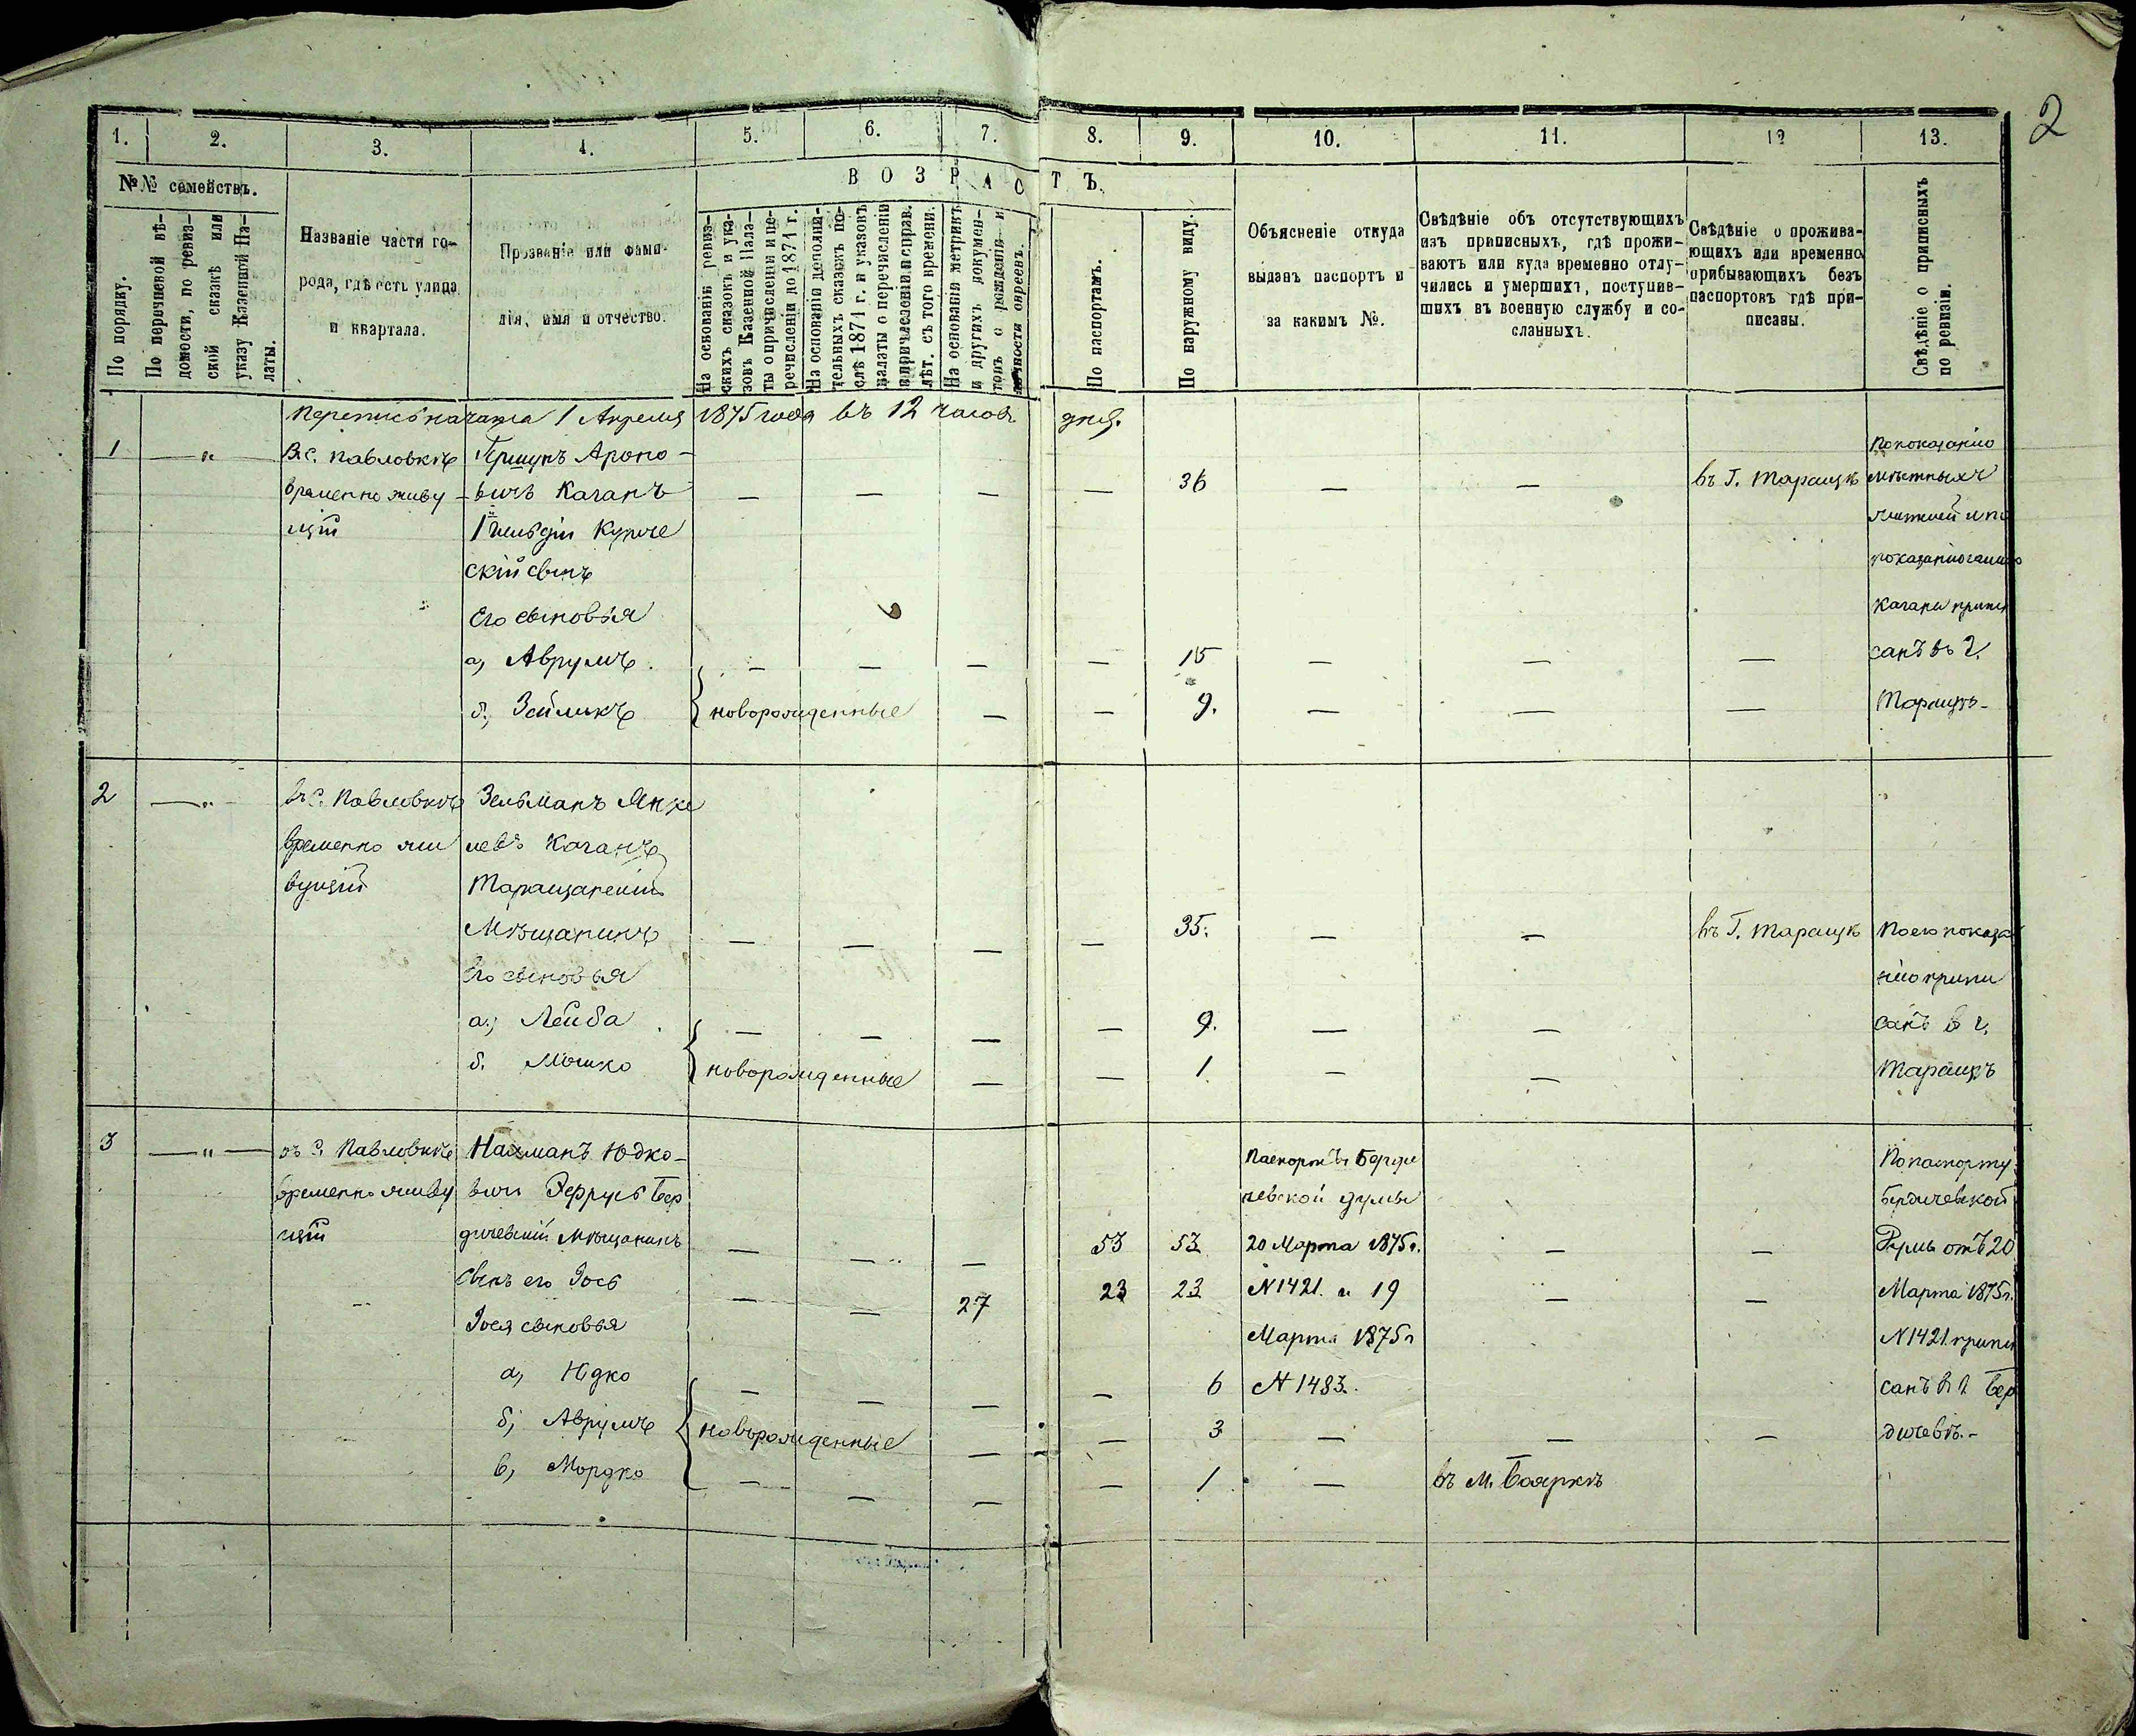 2
1. 2. 3. 4. 5. 6. 7. 8. 9. 10. 11. 12 13.
№№ семействъ.
ВОЗРАСТЪ.
По порядку.
По перечневой вѣ-
домости, по ревиз-
ской сказкѣ или
указу Казенной Па-
латы.
Названіе части го-
рода, гдѣ есть улица
и квартала.
Прозваніе или фами-
лія, имя и отчество.
На основаніи ревиз-
скихъ сказокъ и ука-
зовъ Казенной Пала-
ты о причисленіи и пе-
речисленіи до 1871 г.
На основаніи дополни-
тельныхъ сказокъ по-
слѣ 1871 г. и указовъ
палаты о перечисленіи
и причисленіи и справ.
лѣт. съ того времени.
На основаніи метрикъ
и другихъ докумен-
товъ о рожденіи и
личности евреевъ.
По паспортамъ.
По наружному виду.
Объясненіе откуда
выданъ паспортъ и
за какимъ №.
Свѣдѣніе объ отсутствующихъ
изъ приписныхъ, гдѣ прожи-
ваютъ или куда временно отлу-
чились и умершихъ, поступив-
шихъ въ военную службу и со-
сланныхъ.
Свѣдѣніе о прожива-
ющихъ или временно
прибывающихъ безъ
паспортовъ гдѣ при-
писаны.
Свѣдѣніе о приписныхъ
по ревизіи.
Перепись начата 1 Апреля 1875 года въ 12 часов. дня.
1 —„ В с. Павловкѣ Гершунъ Ароно-
временно живу-
щій
вичъ Каганъ
1й гильдіи Купче
скій сынъ
Его сыновья
а, Аврумъ.
б., Зейликъ
новорожденные
— — — — 36 — — въ Г. Таращѣ
— — — — 15 — — —
— — 9. — — —
По показанію
мѣстныхъ
жителей и по
показанію самаго
Кагана припи
санъ въ г.
Таращѣ-
2 —„— въ с. Павловкѣ Зельманъ Янке
временно жи
вущій
левъ Каганъ
Таращанскій
Мѣщанинъ
Его сыновья
а., Лейба
б. Мошко
новорожденные
— — — — 35. — — въ Г. Таращѣ
— — — — 9. — —
— — 1. — —
По его показа
нію припи
санъ в г.
Таращѣ
3 —„— въ с. Павловкѣ Нахманъ Юдко-
временно живу
щій
дичевскій Мѣщанинъ
Сынъ его Іось
Іося сыновья
а, Юдко
б, Аврумъ
в, Мордко
новорожденные
— — — 53 53
— — 27 23 23
— — — — 6
— — 3 — — —
— — — — 1 — въ М. Бояркѣ
Паспортъ Берди
чевской думы
20 Марта 1875 г.
N 1421. и 19
Марта 1875 г
N 1483.
По паспорту
Бердичевской
Думы отъ 20
Марта 1875 г.
N 1421 припи
санъ в г. Бер
дичевѣ.-